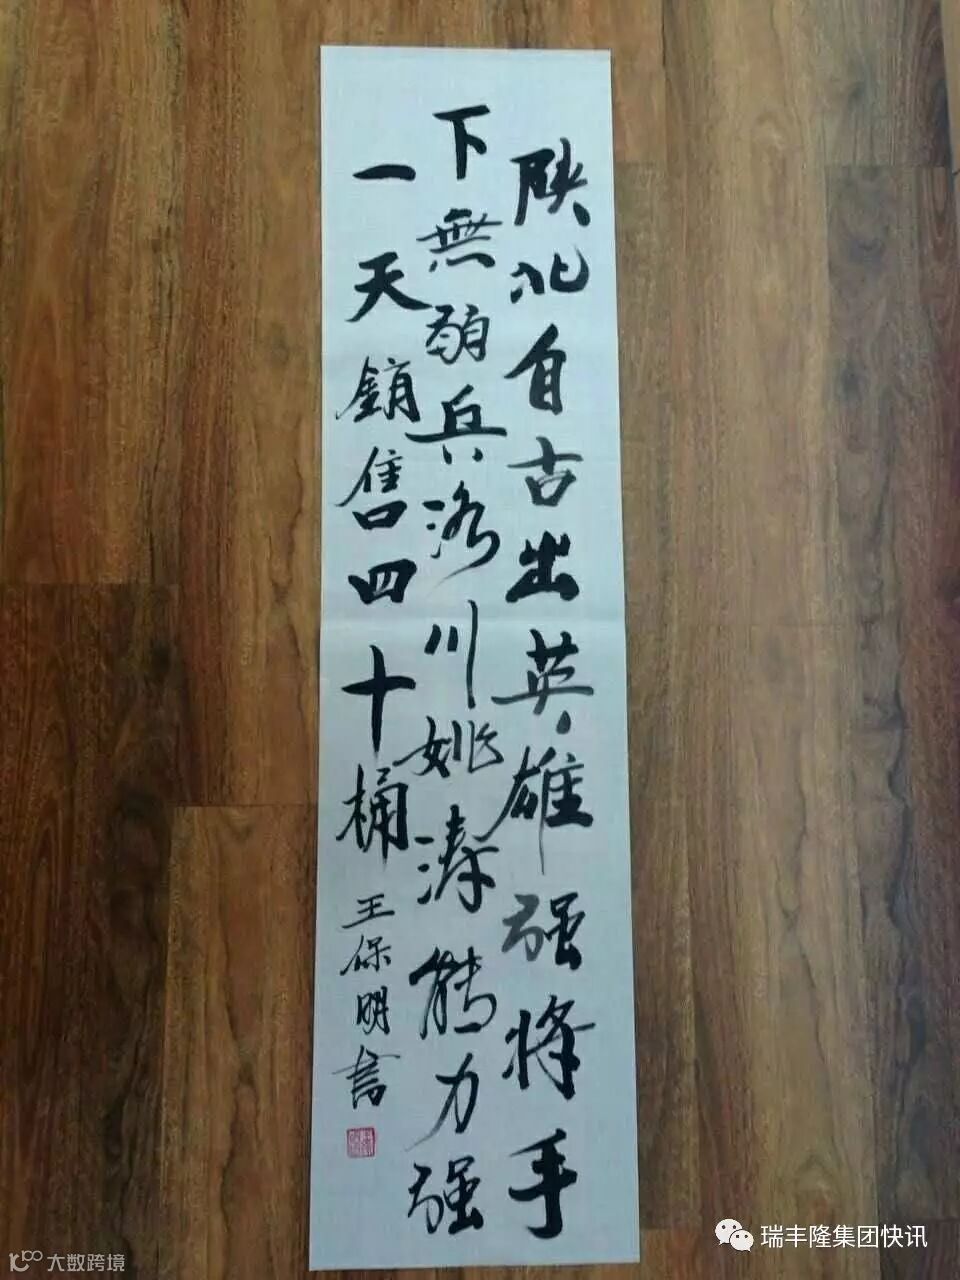 陝北自古出英雄强将手
下無弱兵洛川姚涛能力强
一天銷售四十桶
王保明書
瑞丰隆集团快讯
大数跨境